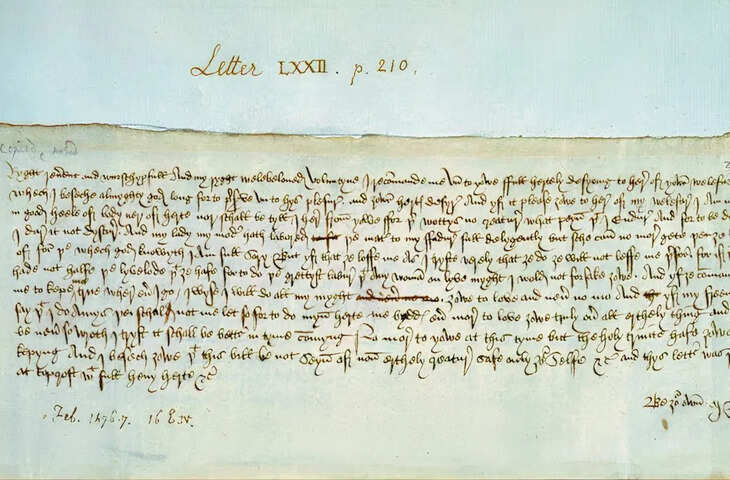 Letter LXXII. p. 210.
Ryght reu​erent and wurschypfull And my ryght welebeloued Voluntyne I recomande me vn to yowe ffull hertely desyring to here off yowr welefar
whech I beseche almyghty god long for to pserve vn to hys plesur and yowr hertys desyre And yf it please yowe to here of my welefar I am n
in good heele off body ner off herte nor schall be tyll I here from yowe ffor þer wottys no creatur what peyn þt I endur And for to be de
I dar it not dyscur And my lady my moder hath labored þe mater to my ffadur full delygently but sche can no mor gete þen ȝe
off for þe whech god knowyth I am full sory But yf that ȝe loffe me As I tryste verely that ȝe do ȝe will not leffe me þerfor for if
hade not halfe þe lyvelode þt ȝe hafe for to do þe grettyst labur þt Any woman on lyve myght I wold not forsake ȝowe And yf ȝe comman
me to kepe me true wher eu I go I wyse I will do all my myght ȝowe to love and neu no mo And yf my freen
say þt I do Amys þei schal not me let so for to do myn herte me bydds eu mor to love ȝowe truly ou all erthely thing and
be neu so wroth I tryst it schall be bettur in tyme comyng No mor to yowe at this tyme but the holy trinite hafe ȝowe
kepyng And I besech ȝowe þt this bill be not seyn off non erthely creatur safe only ȝor selfe &c and thys lettur was
at topcroft wt full hevy herte &c
Be ȝor own
Feb. 1476-7. 16 E.IV.